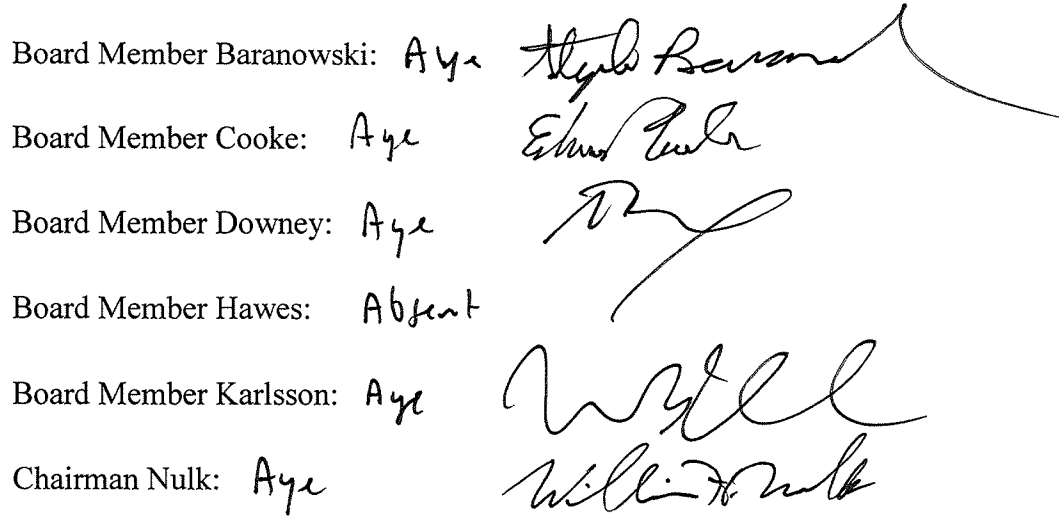 Board Member Baranowski: Aye
Board Member Cooke: Aye
Board Member Downey: Aye
Board Member Hawes: Absent
Board Member Karlsson: Aye
Chairman Nulk: Aye William H. Nulk